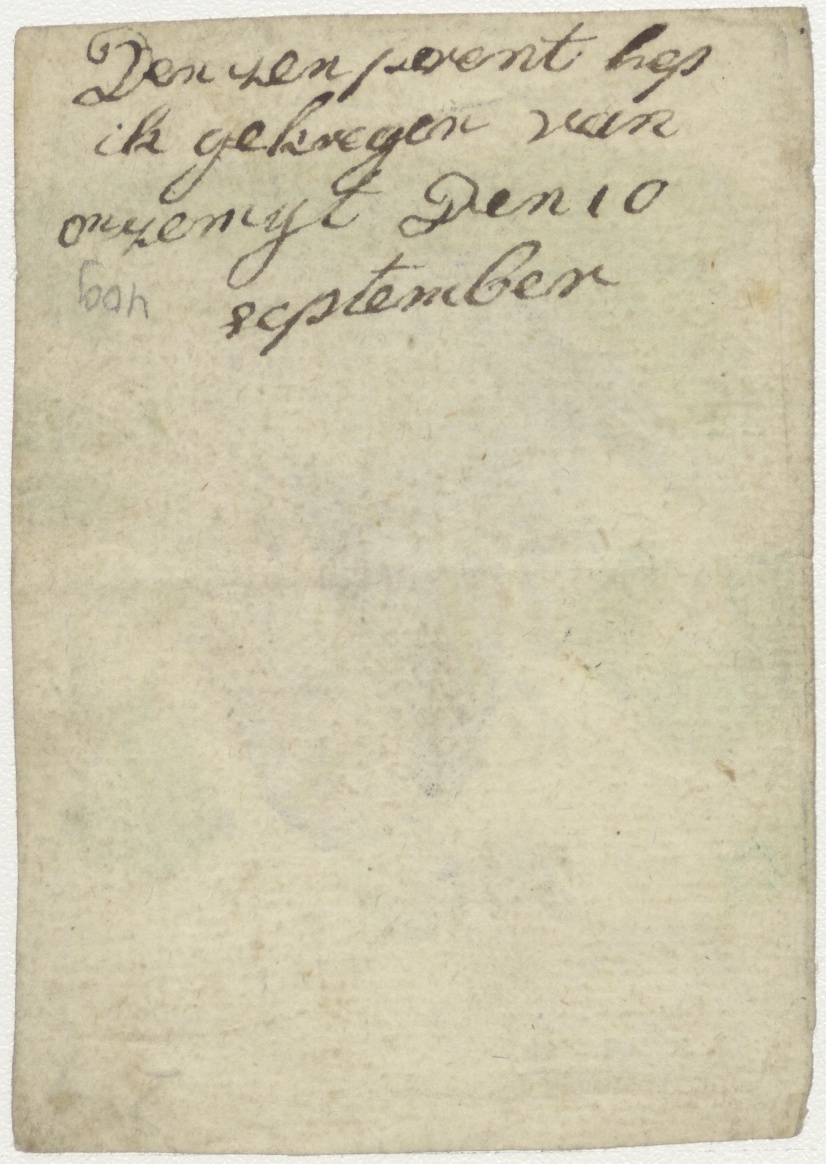 Den zen perent hep
ik gekregen van
onzemijt Den 10
september